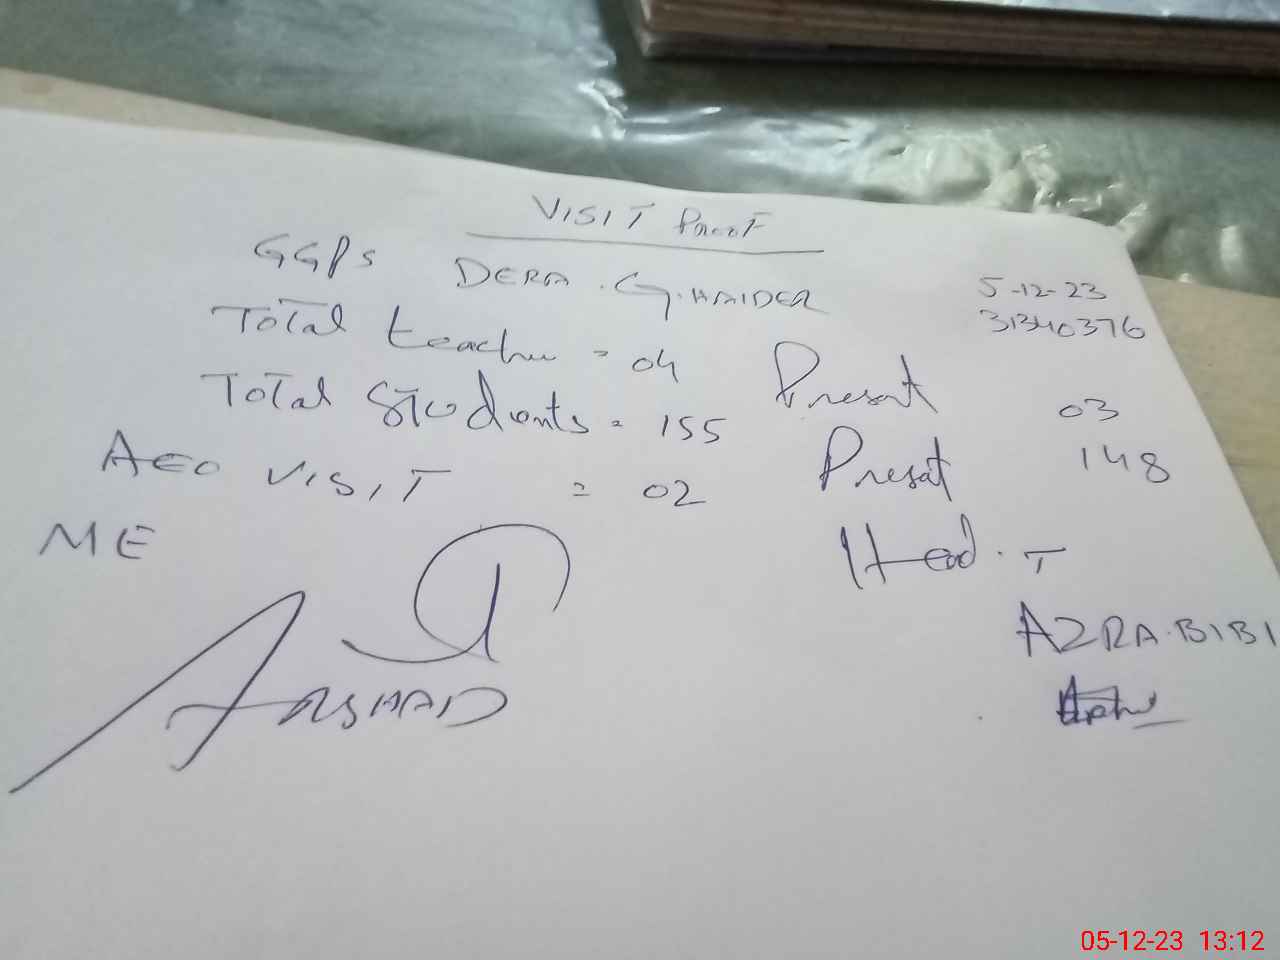 VISIT Proof
GGPS DERA .G.HAIDER 5-12-23
31340376
Total teacher = 04 Present 03
Total Students = 155 Present 148
AEO VISIT = 02
ME Head. T
ARSHAD AZRA.BIBI
05-12-23 13:12